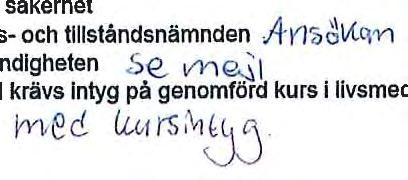 säkerhet
s- och tillståndsnämnden Ansökan
ndigheten se mejl
l krävs intyg på genomförd kurs i livsmed
med kursintyg.